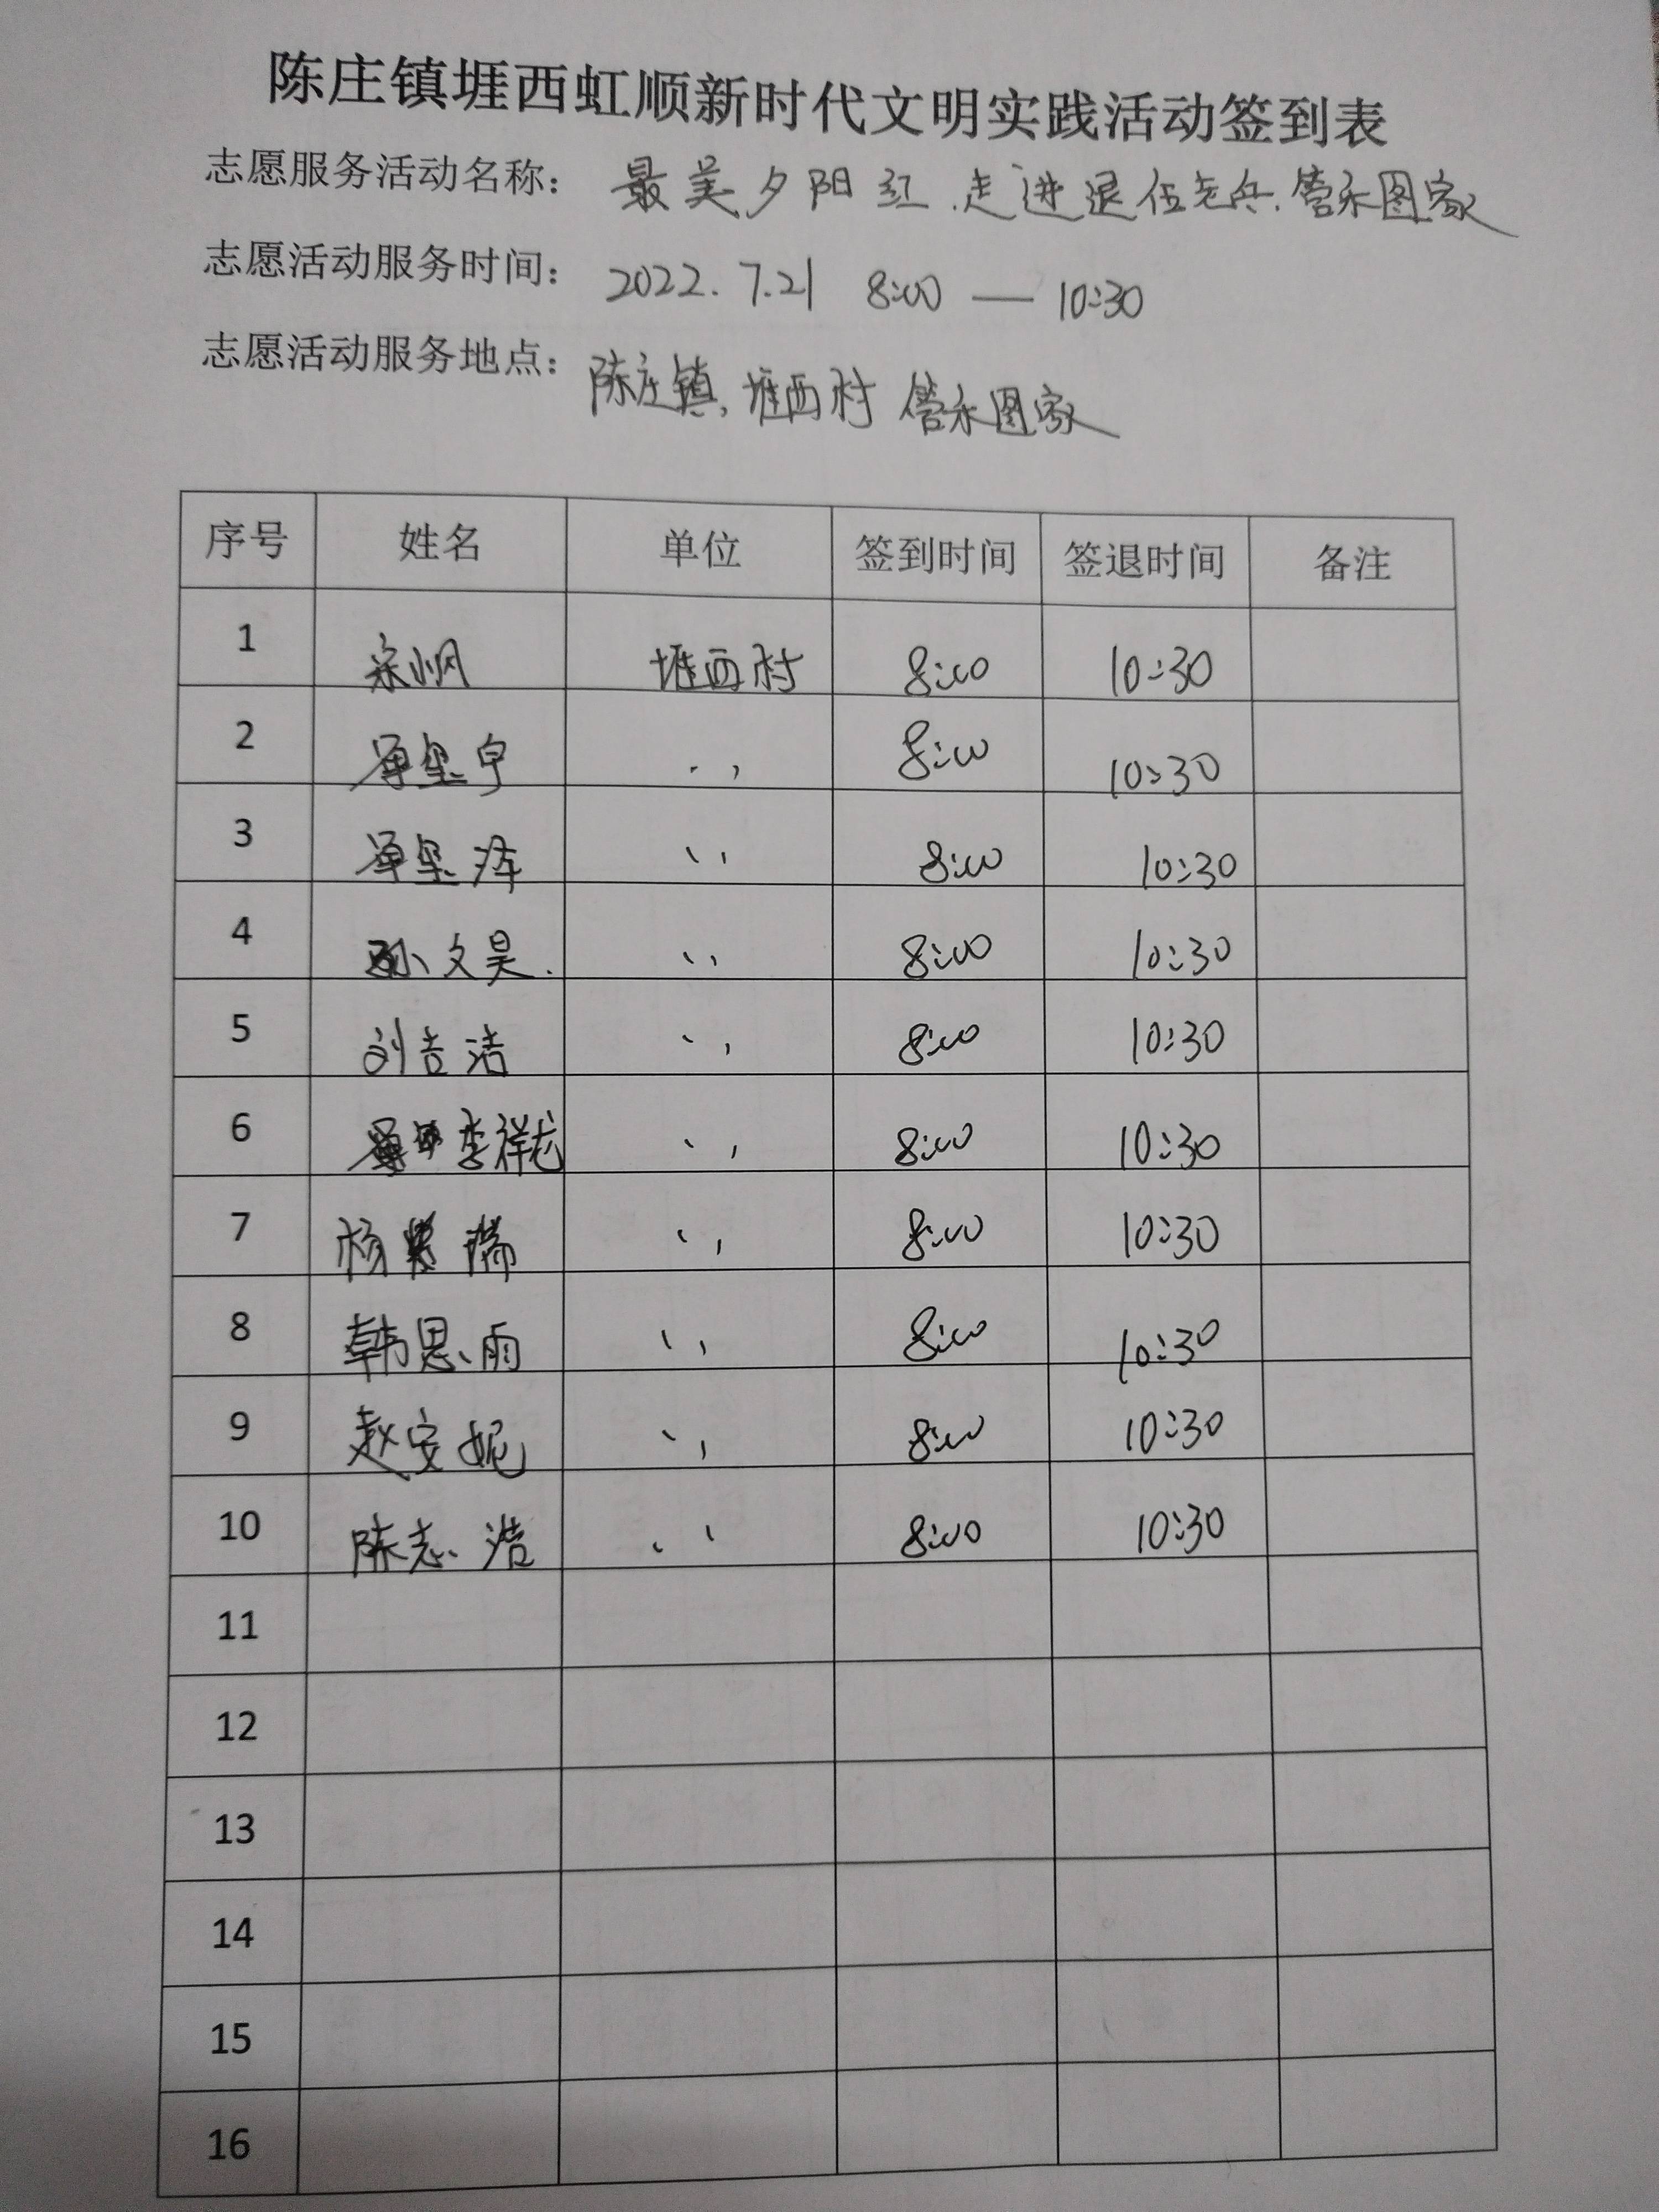 陈庄镇堐西虹顺新时代文明实践活动签到表
志愿服务活动名称： 最美夕阳红.走进退伍老兵.管永图家
志愿活动服务时间： 2022.7.21 8:00 — 10:30
志愿活动服务地点： 陈庄镇,堐西村 管永图家
序号 姓名 单位 签到时间 签退时间 备注
1 堐西村 8:00 10:30
2 〃 8:00 10:30
3 〃 8:00 10:30
4 孙文昊. 〃 8:00 10:30
5 刘吉洁 〃 8:00 10:30
6 李祥龙 〃 8:00 10:30
7 杨 瑞 〃 8:00 10:30
8 韩思雨 〃 8:00 10:30
9 赵安妮 〃 8:00 10:30
10 陈志浩 〃 8:00 10:30
11
12
13
14
15
16